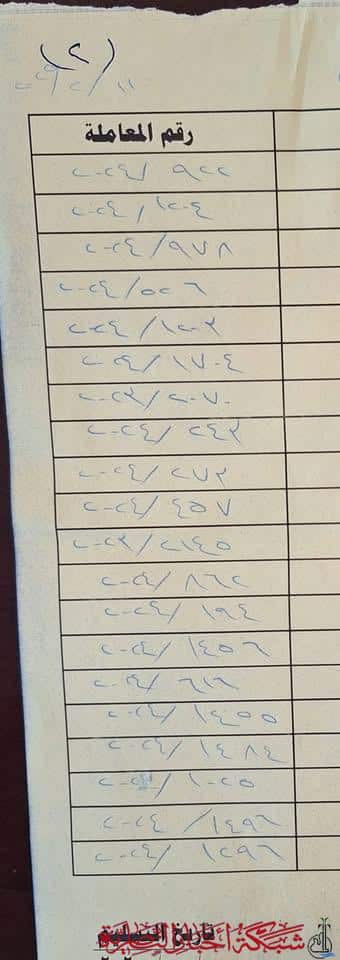 (٢)
رقم المعاملة
٩٢٢/٢٠٢٤
١٢٠٤/٢٠٢٤
٩٧٨/٢٠٢٤
٥٢٦/٢٠٢٤
١٢٠٣/٢٠٢٤
١٧٠٤/٢٠٢٤
٢٠٧٠/٢٠٢٣
٢٤٣/٢٠٢٤
٢٧٣/٢٠٢٤
٤٥٧/٢٠٢٤
٢١٤٥/٢٠٢٣
٨٦٢/٢٠٢٤
١٩٤/٢٠٢٤
١٤٥٦/٢٠٢٤
٦١٦/٢٠٢٤
١٤٥٥/٢٠٢٤
١٤٨٤/٢٠٢٤
١٠٢٥/٢٠٢٤
١٤٩٦/٢٠٢٤
١٢٩٦/٢٠٢٤
تاريخ
شبكة أخبار